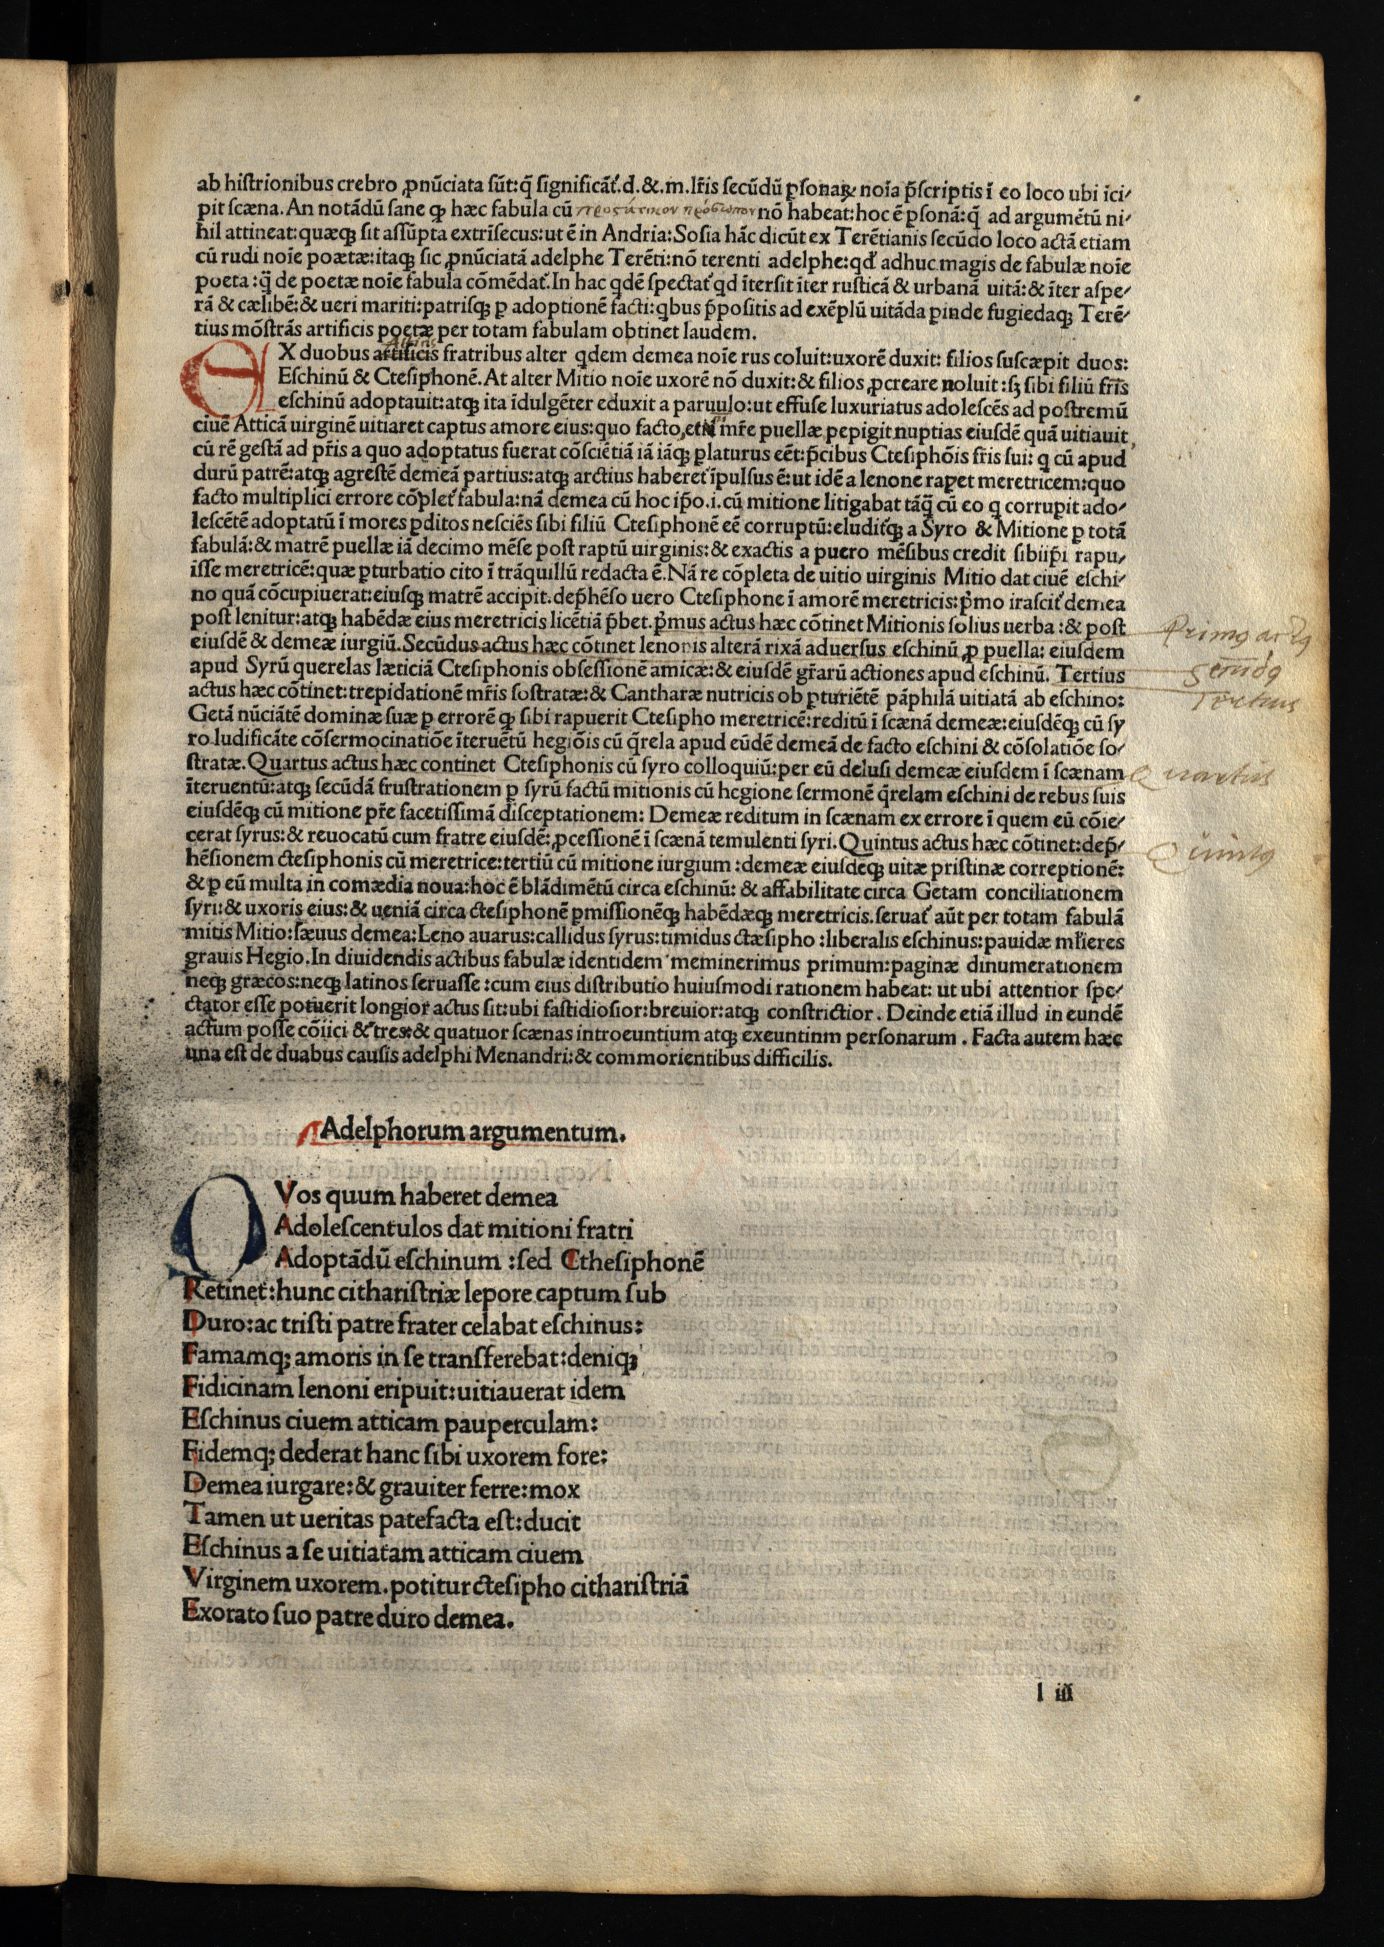 ab hiſtrionibus crebro ꝓnũciata sũt:q̃ ſignificãt᷑.d.&.m.lr̃is ſecũdũ ꝑſonaꝝ noĩa p̃ſcriptis ĩ eo loco ubi ĩci⸗
pit ſcæna.An notãdũ ſane ꝙ hæc fabula cũ προτατικον πρόσωπον nõ habeat:hoc ẽ ꝑſonã:q̃ ad argumẽtũ ni⸗
hil attineat:quæqꝫ ſit aſſũpta extrĩſecus:ut ẽ in Andria:Soſia hãc dicũt ex Terẽtianis ſecũdo loco actã etiam
cũ rudi noĩe poætæ:itaqꝫ ſic ꝓnũciatã adelphe Terẽti:nõ terenti adelphe:qd᷑ adhuc magis de fabulæ noĩe
poeta:q̃ de poetæ noĩe fabula cõmẽdat᷑.In hac qdẽ ſpectat᷑ qd ĩterſit ĩter ruſticã & urbanã uitã:& ĩter aſpe⸗
rã & cælibẽ:& ueri mariti:patriſqꝫ ꝑ adoptionẽ facti:qbus p̃poſitis ad exẽplũ uitãda ꝑinde fugiedaqꝫ Terẽ⸗
tius mõſtrãs artificis poetæ per totam fabulam obtinet laudem.
EX duobus artificis fratribus alter qdem demea noĩe rus coluit:uxorẽ duxit: filios ſuſcæpit duos:
Eſchinũ & Cteſiphonẽ.At alter Mitio noĩe uxorẽ nõ duxit:& filios ꝓcreare noluit:ſꝫ ſibi filiũ fr̃is
eſchinũ adoptauit:atqꝫ ita ĩdulgẽter eduxit a paruulo:ut effuſe luxuriatus adoleſcẽs ad poſtremũ
ciuẽ Atticã uirginẽ uitiaret captus amore eius:quo facto mr̃e puellæ pepigit nuptias eiuſdẽ quã uitiauit
cũ rẽ geſtã ad pr̃is a quo adoptatus fuerat cõſciẽtiã iã iãqꝫ ꝑlaturus eẽt:p̃cibus Cteſiphõis fr̃is ſui: q cũ apud
durũ patrẽ:atqꝫ agreſtẽ demeã partius:atqꝫ arctius haberet᷑ ĩpulſus ẽ:ut idẽ a lenone rapet meretricem:quo
facto multiplici errore cõplet᷑ fabula:nã demea cũ hoc ip̃o.i.cũ mitione litigabat tãq̃ cũ eo q corrupit ado⸗
leſcẽtẽ adoptatũ ĩ mores ꝑditos neſciẽs ſibi filiũ Cteſiphonẽ eẽ corruptũ:eludit᷑qꝫ a Syro & Mitione ꝑ totã
fabulã:& matrẽ puellæ iã decimo mẽſe poſt raptũ uirginis:& exactis a puero mẽſibus credit ſibiip̃i rapu⸗
ĩſſe meretricẽ:quæ ꝑturbatio cito ĩ trãquillũ redacta ẽ.Nã re cõpleta de uitio uirginis Mitio dat ciuẽ eſchi⸗
no quã cõcupiuerat:eiuſqꝫ matrẽ accipit.dep̃hẽſo uero Cteſiphone ĩ amorẽ meretricis:p̃mo iraſcit᷑ demea
poſt lenitur:atqꝫ habẽdæ eius meretricis licẽtiã p̃bet.p̃mus actus hæc cõtinet Mitionis ſolius uerba:& poſt
eiuſdẽ & demeæ iurgiũ.Secũdus actus hæc cõtinet lenonis alterã rixã aduerſus eſchinũ ꝓ puella: eiuſdem
apud Syrũ querelas læticiã Cteſiphonis obſeſſionẽ amicæ:& eiuſdẽ gr̃arũ actiones apud eſchinũ. Tertius
actus hæc cõtinet:trepidationẽ mr̃is ſoſtratæ:& Cantharæ nutricis ob ꝑturiẽtẽ pãphilã uitiatã ab eſchino:
Getã nũciãtẽ dominæ ſuæ ꝑ errorẽ ꝙ ſibi rapuerit Cteſipho meretricẽ:reditũ ĩ ſcænã demeæ:eiuſdẽqꝫ cũ ſy
ro ludificãte cõſermocinatiõe ĩteruẽtũ hegiõis cũ q̃rela apud eũdẽ demeã de facto eſchini & cõſolatiõe ſo⸗
ſtratæ.Quartus actus hæc continet Cteſiphonis cũ ſyro colloquiũ:per eũ deluſi demeæ eiuſdem ĩ ſcænam
ĩteruentũ:atqꝫ ſecũdã fruſtrationem ꝑ ſyrũ factũ mitionis cũ hegione ſermonẽ q̃relam eſchini de rebus ſuis
eiuſdẽqꝫ cũ mitione pr̃e facetiſſimã diſceptationem: Demeæ reditum in ſcænam ex errore ĩ quem eũ cõie⸗
cerat ſyrus:& reuocatũ cum fratre eiuſdẽ:ꝓceſſionẽ ĩ ſcænã temulenti ſyri.Quintus actus hæc cõtinet:dep̃⸗
hẽſionem cteſiphonis cũ meretrice:tertiũ cũ mitione iurgium:demeæ eiuſdẽqꝫ uitæ priſtinæ correptionẽ:
& ꝑ eũ multa in comædia noua:hoc ẽ blãdimẽtũ circa eſchinũ: & affabilitate circa Getam conciliationem
ſyri:& uxoris eius:& ueniã circa cteſiphonẽ ꝑmiſſionẽqꝫ habẽdæqꝫ meretricis.ſeruat᷑ aũt per totam fabulã
mitis Mitio:ſæuus demea:Leno auarus:callidus ſyrus:timidus ctæſipho:liberalis eſchinus:pauidæ ml̃ieres
grauis Hegio.In diuidendis actibus fabulæ identidem meminerimus primum:paginæ dinumerationem
neqꝫ græcos:neqꝫ latinos ſeruaſſe:cum eius diſtributio huiuſmodi rationem habeat: ut ubi attentior ſpe⸗
ctator eſſe potuerit longior actus ſit:ubi faſtidioſior:breuior:atqꝫ conſtrictior. Deinde etiã illud in eundẽ
actum poſſe cõiici & tres:& quatuor ſcænas introeuntium atqꝫ exeuntinm perſonarum. Facta autem hæc
una eſt de duabus cauſis adelphi Menandri:& commorientibus difficilis.
Primꝰ actꝰ
Secũdꝰ
Tertius
Quartus
Quintꝰ
Adelphorum argumentum.
QVos quum haberet demea
Adoleſcentulos dat mitioni fratri
Adoptãdũ eſchinum:ſed Ctheſiphonẽ
Retinet:hunc cithariſtriæ lepore captum ſub
Duro:ac triſti patre frater celabat eſchinus:
Famamqꝫ amoris in ſe transferebat:deniqꝫ
Fidicinam lenoni eripuit:uitiauerat idem
Eſchinus ciuem atticam pauperculam:
Fidemqꝫ dederat hanc ſibi uxorem fore:
Demea iurgare:& grauiter ferre:mox
Tamen ut ueritas patefacta eſt:ducit
Eſchinus a ſe uitiatam atticam ciuem
Virginem uxorem.potitur cteſipho cithariſtriã
Exorato ſuo patre duro demea.
l iii